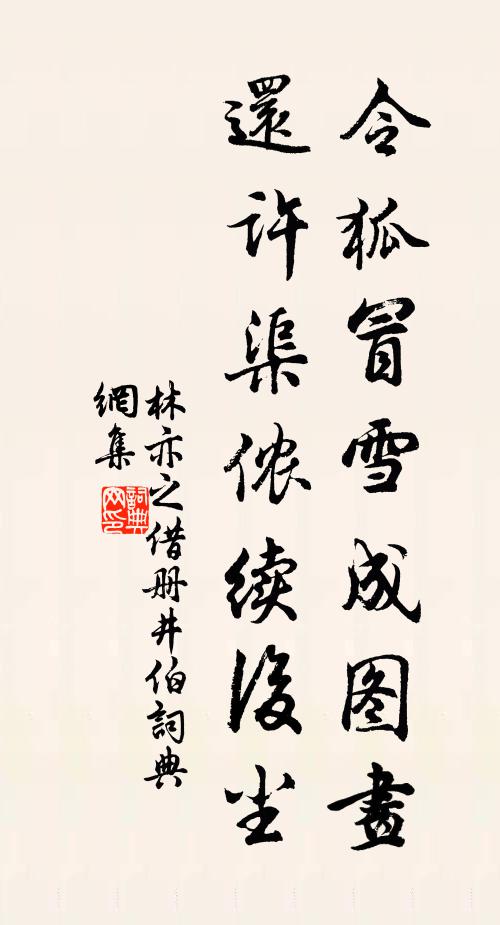 令狐冒雪成图畫
還许渠侬续後尘
林亦之借册井伯詞典
網集
詞典
网印